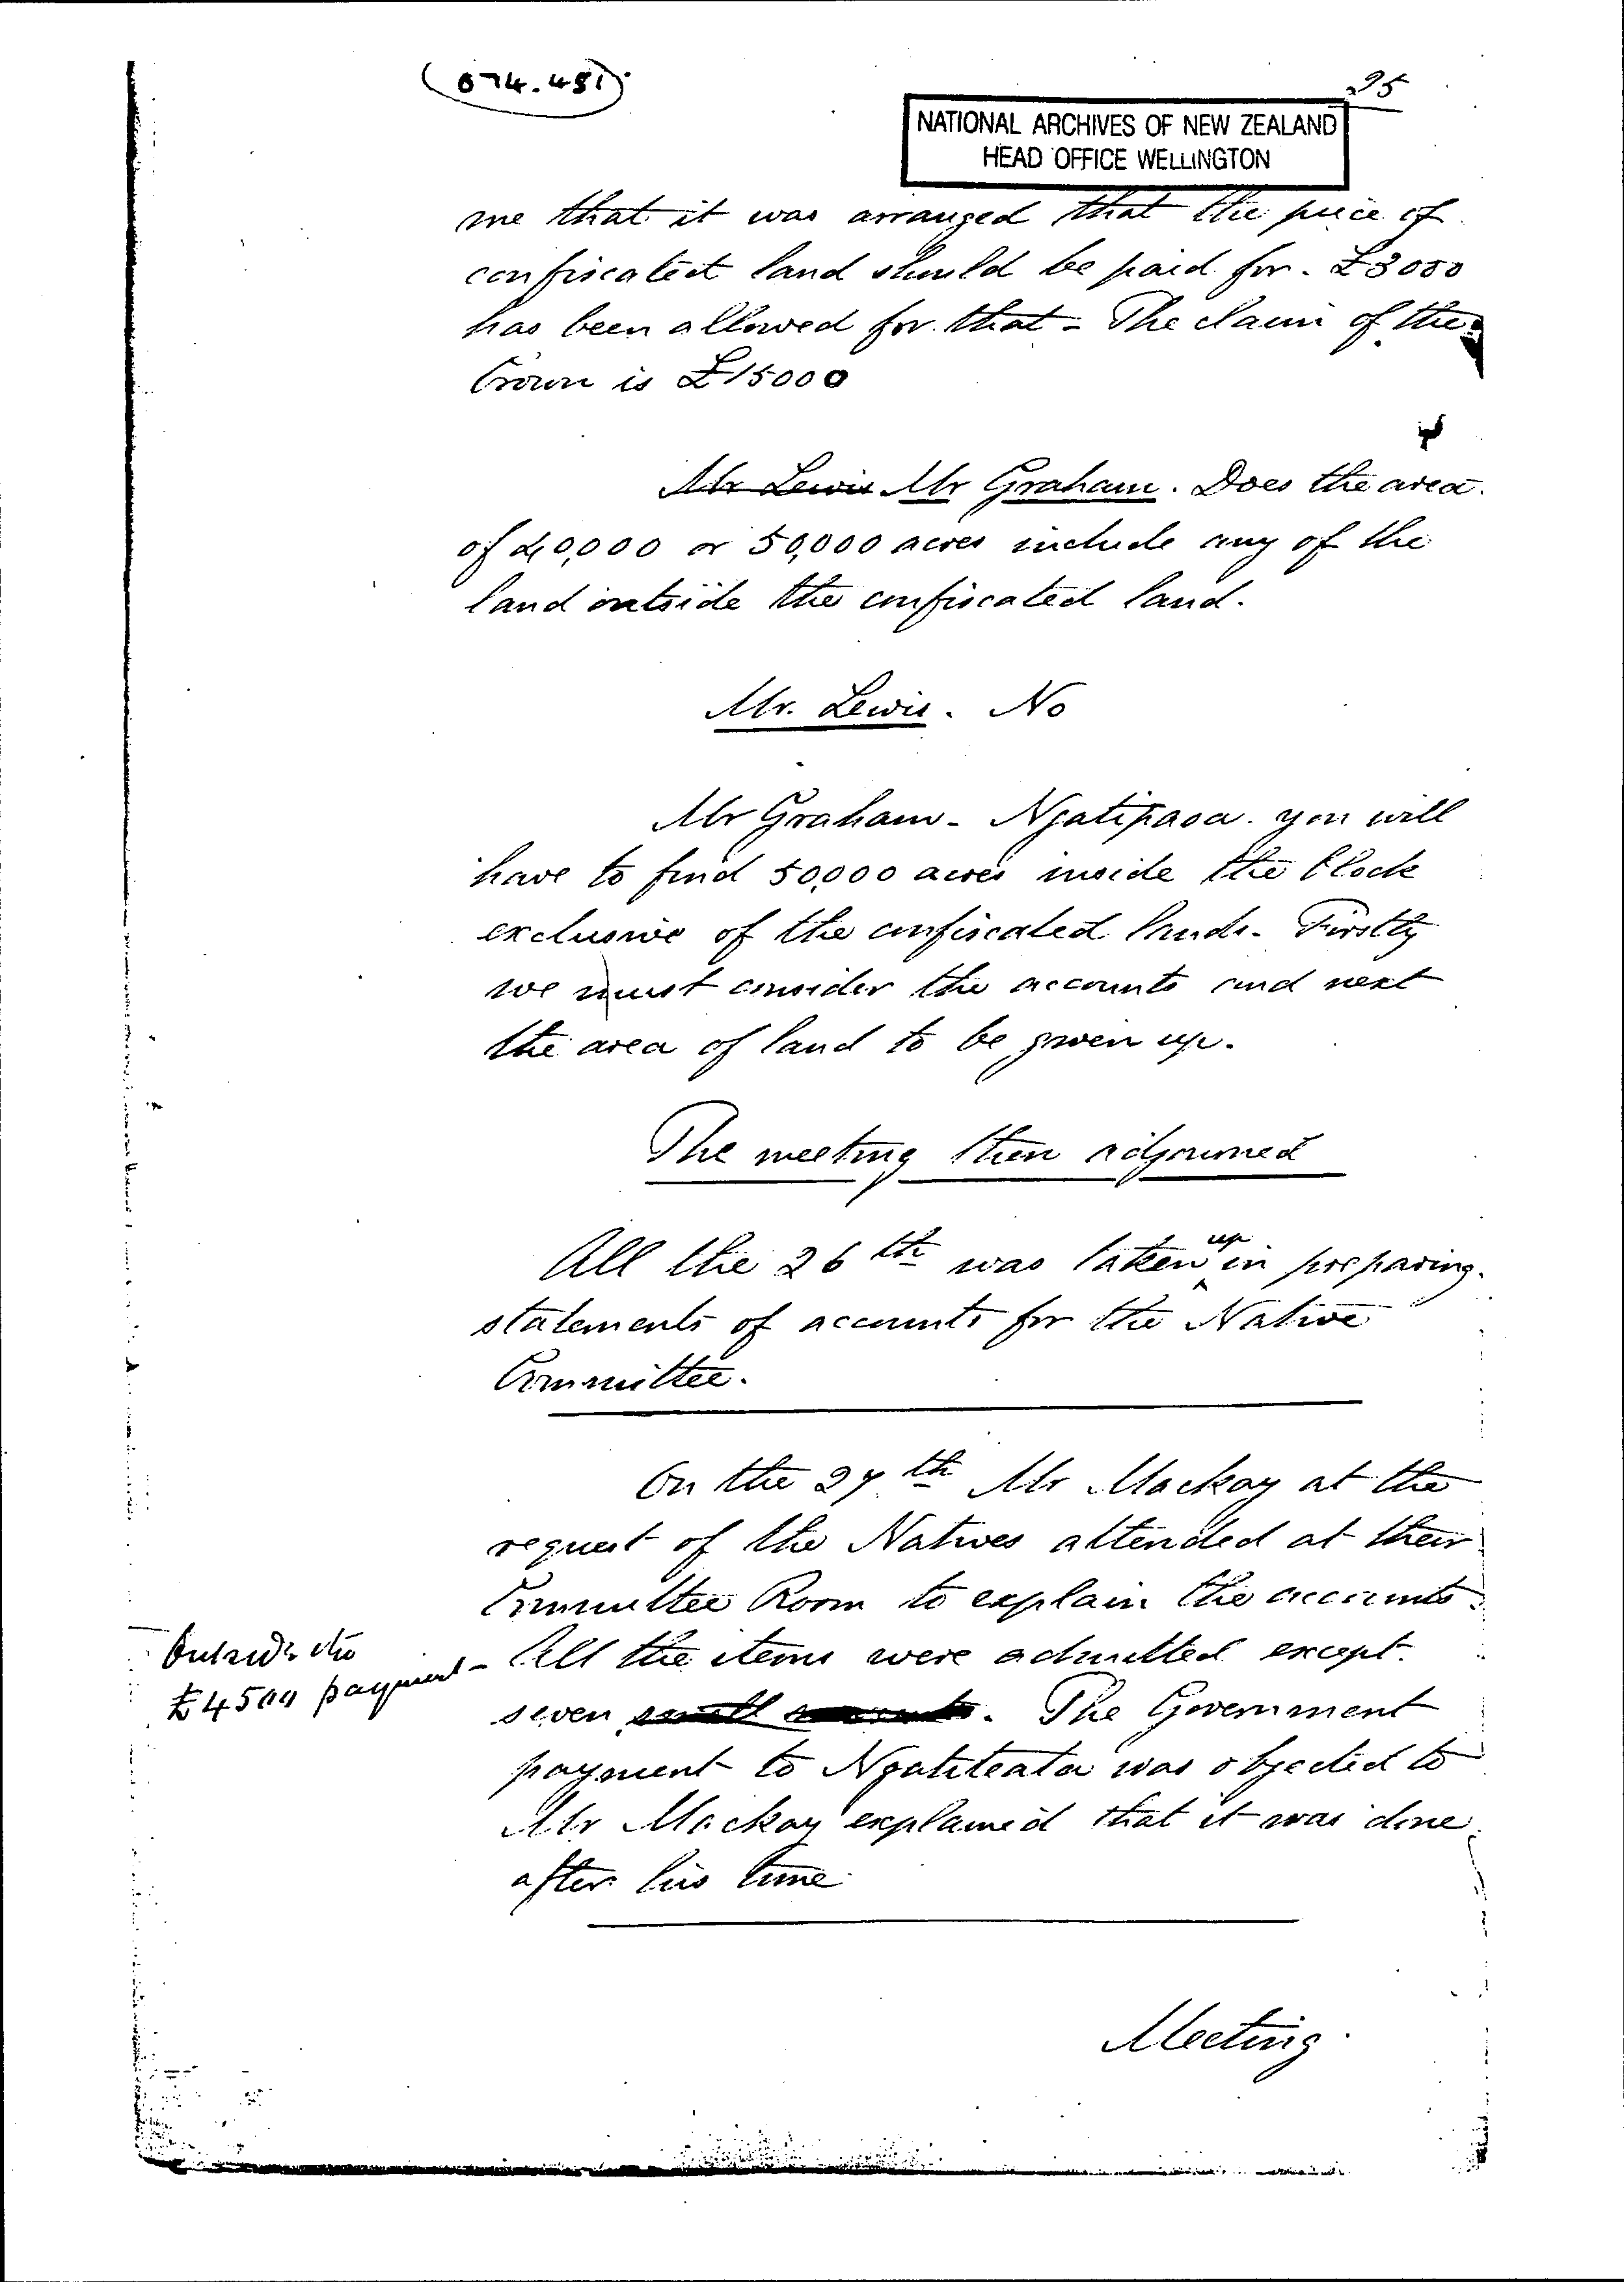 (074.451)
25
NATIONAL ARCHIVES OF NEW ZEALAND
HEAD OFFICE WELLINGTON
me that it was arranged that the piece of
confiscated land should be paid for. £3000
has been allowed for that - The claim of the
Crown is £15000
Mr Lewis Mr Graham. Does the area
of 40,000 or 50,000 acres include any of the
land outside the confiscated land.
Mr. Lewis. No
Mr Graham - Ngatipaoa. you will
have to find 50,000 acres inside the block
exclusive of the confiscated lands. Firstly
we must consider the accounts and next
the area of land to be given up.
The meeting then adjourned
All the 26th was taken up in preparing
statements of accounts for the Native
Committee.
On the 27th Mr Mackay at the
request of the Natives attended at their
Committee Room to explain the accounts.
Outside the
£4500 payment - All the items were admitted except
seven small amounts. The Government
payment to Ngatiteata was objected to
Mr Mackay explained that it was done
after his time
Meeting